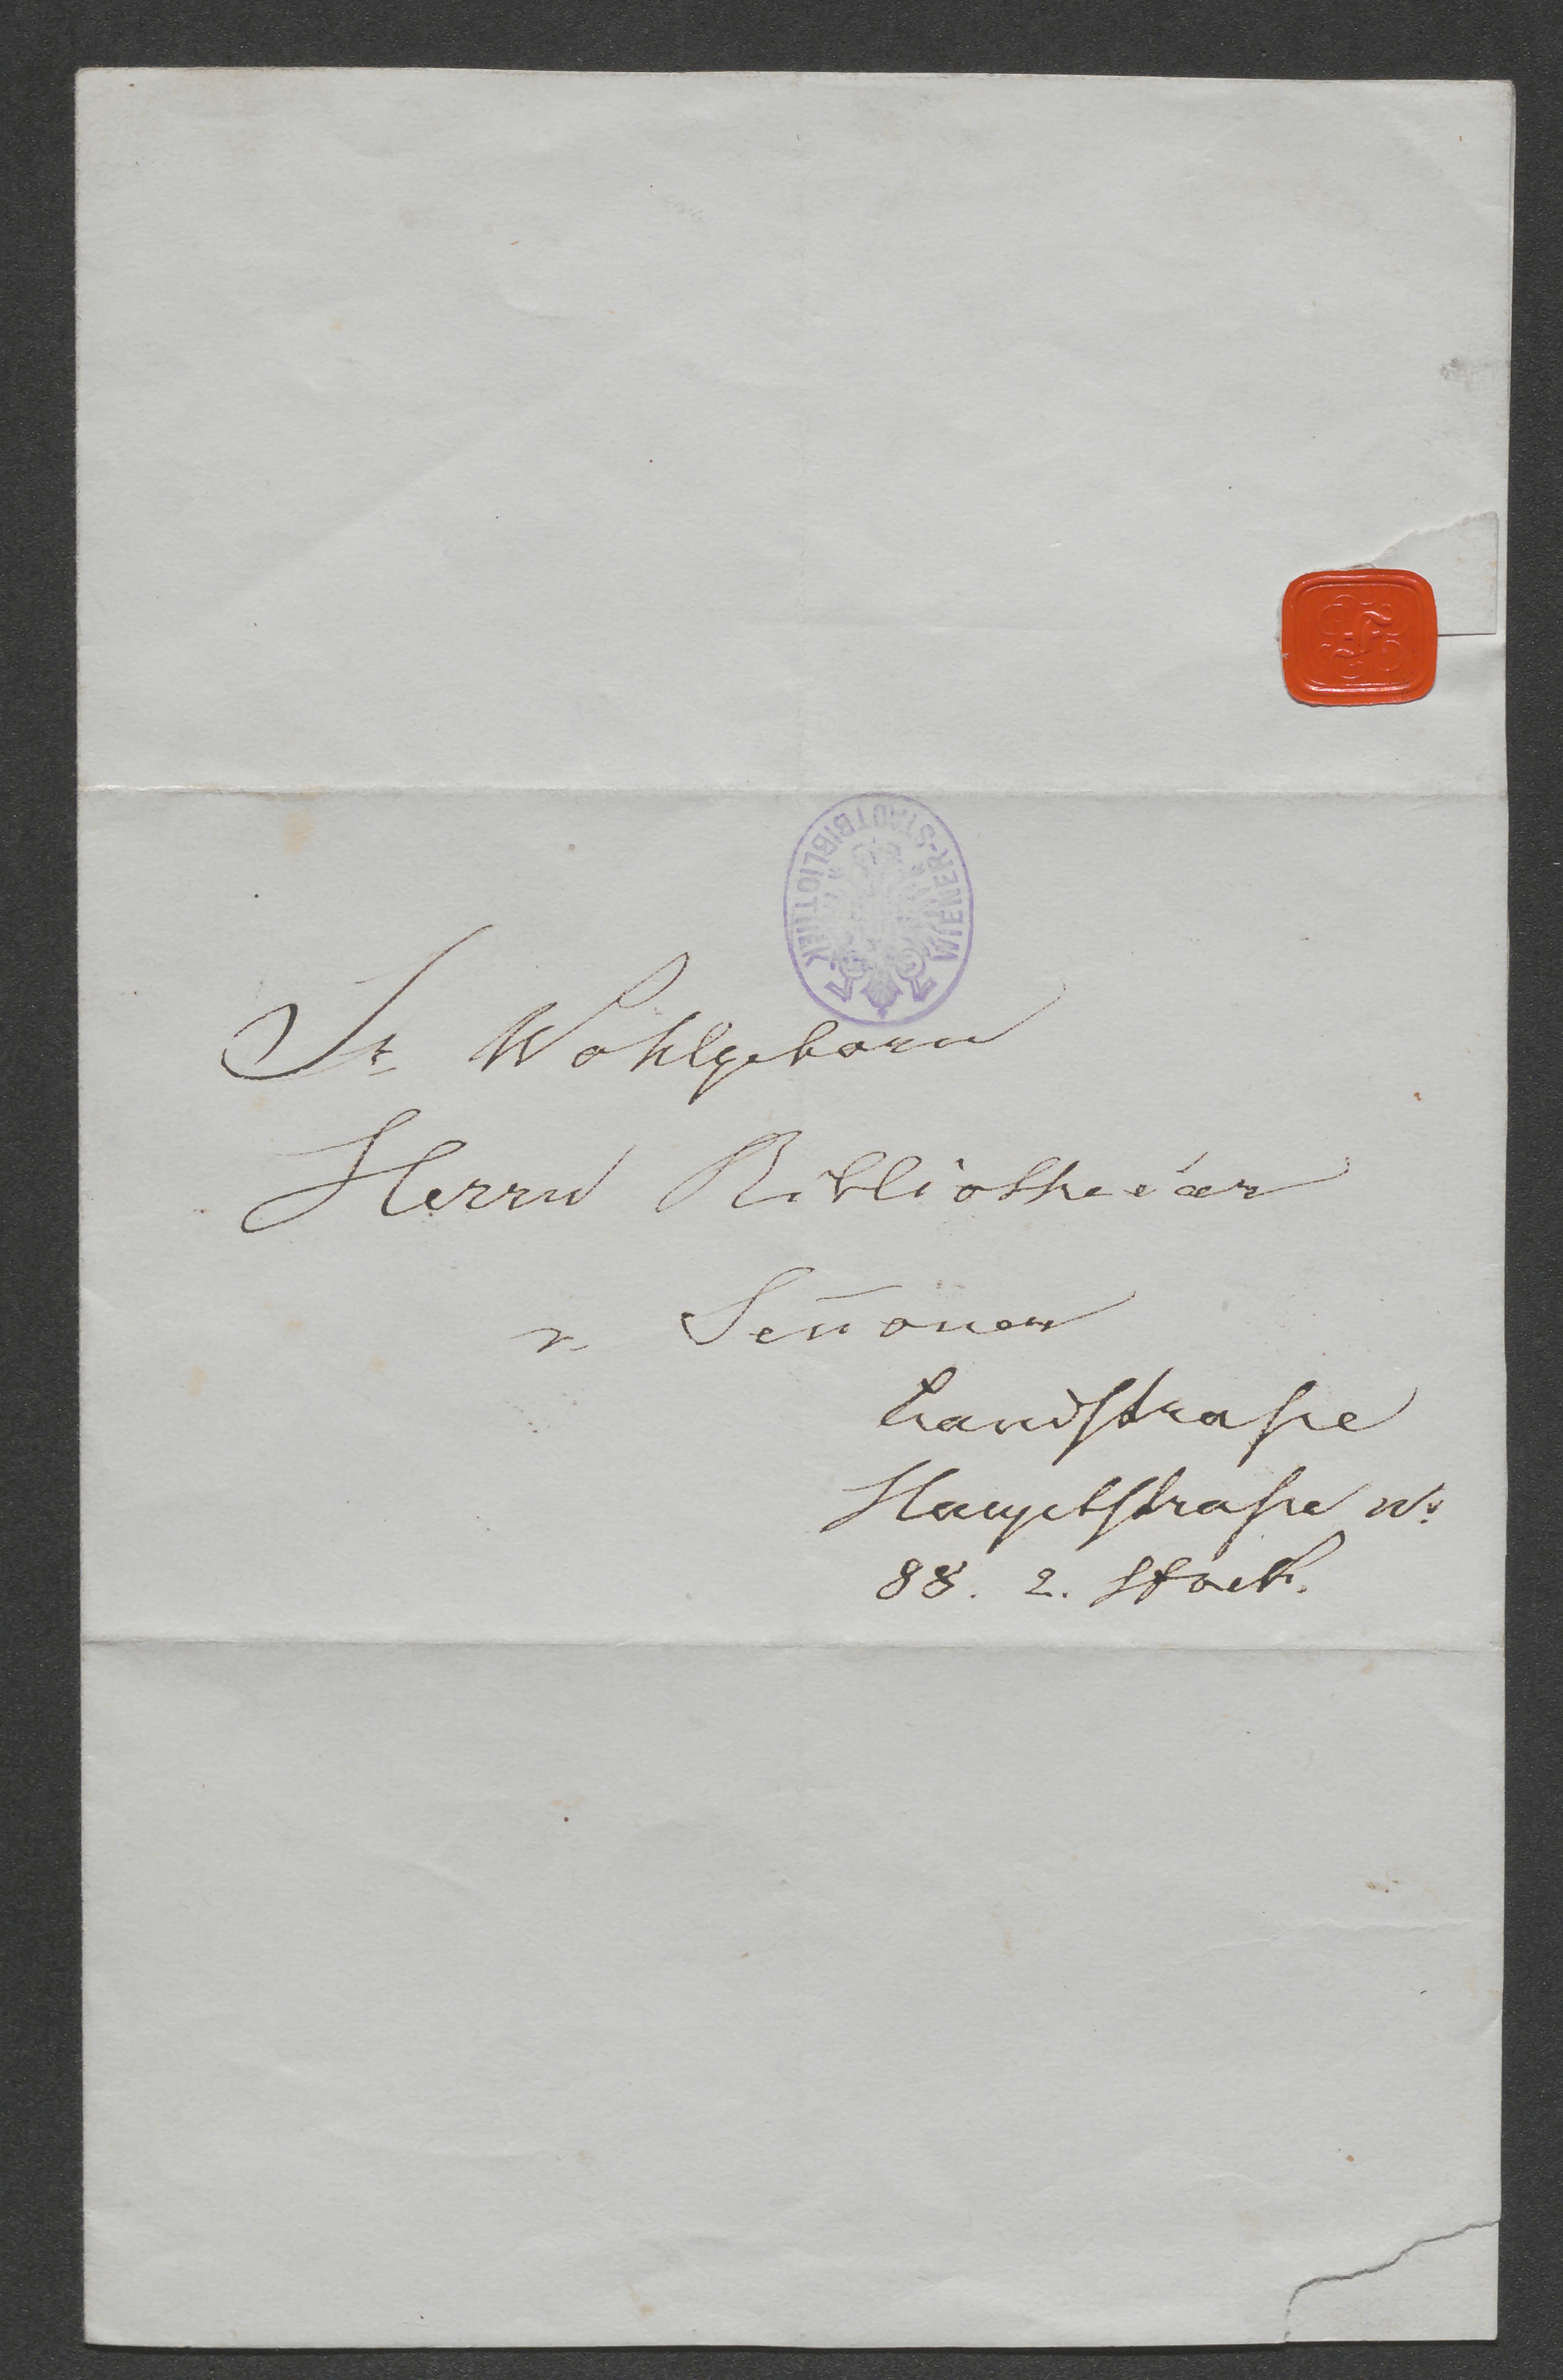 WIENER-STADTBIBLIOTHEK
Sr Wohlgeborn
Herrn Bibliothecär
v. Señoner
Landstraße
Hauptstraße No
88. 2. Stock.